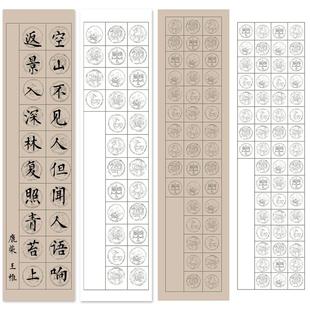 空山不见人但闻人语响
返景入深林复照青苔上
鹿柴 王维